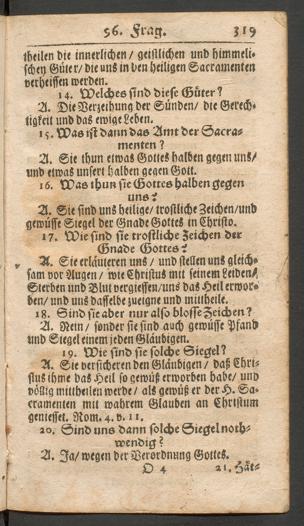 56. Frag. 319
theilen die innerlichen / geistlichen und himmeli-
schen Güter / die uns in den heiligen Sacramenten
verheissen werden.
14. Welches sind diese Güter?
A. Die Verzeihung der Sünden / die Gerech-
tigkeit und das ewige Leben.
15. Was ist dann das Amt der Sacra-
menten?
A. Sie thun etwas Gottes halben gegen uns /
und etwas unsert halben gegen Gott.
16. Was thun sie Gottes halben gegen
uns?
A. Sie sind uns heilige / trostliche Zeichen / und
gewüsse Siegel der Gnade Gottes in Christo.
17. Wie sind sie trostliche Zeichen der
Gnade Gottes?
A. Sie erläuteren uns / und stellen uns gleich-
sam vor Augen / wie Christus mit seinem Leiden /
Sterben und Blut vergiessen / uns das Heil erwor-
ben / und uns dasselbe zueigne und mittheile.
18. Sind sie aber nur also blosse Zeichen?
A. Nein / sonder sie sind auch gewüsse Pfand
und Siegel einem jeden Gläubigen.
19. Wie sind sie solche Siegel?
A. Sie versicheren den Gläubigen / daß Chri-
stus ihme das Heil so gewüß erworben habe / und
völlig mittheilen werde / als gewüß er der H. Sa-
cramenten mit wahrem Glauben an Christum
geniesset. Rom. 4. v. 11.
20. Sind uns dann solche Siegel noth-
wendig?
A. Ja / wegen der Verordnung Gottes.
O 4 21. Hät-